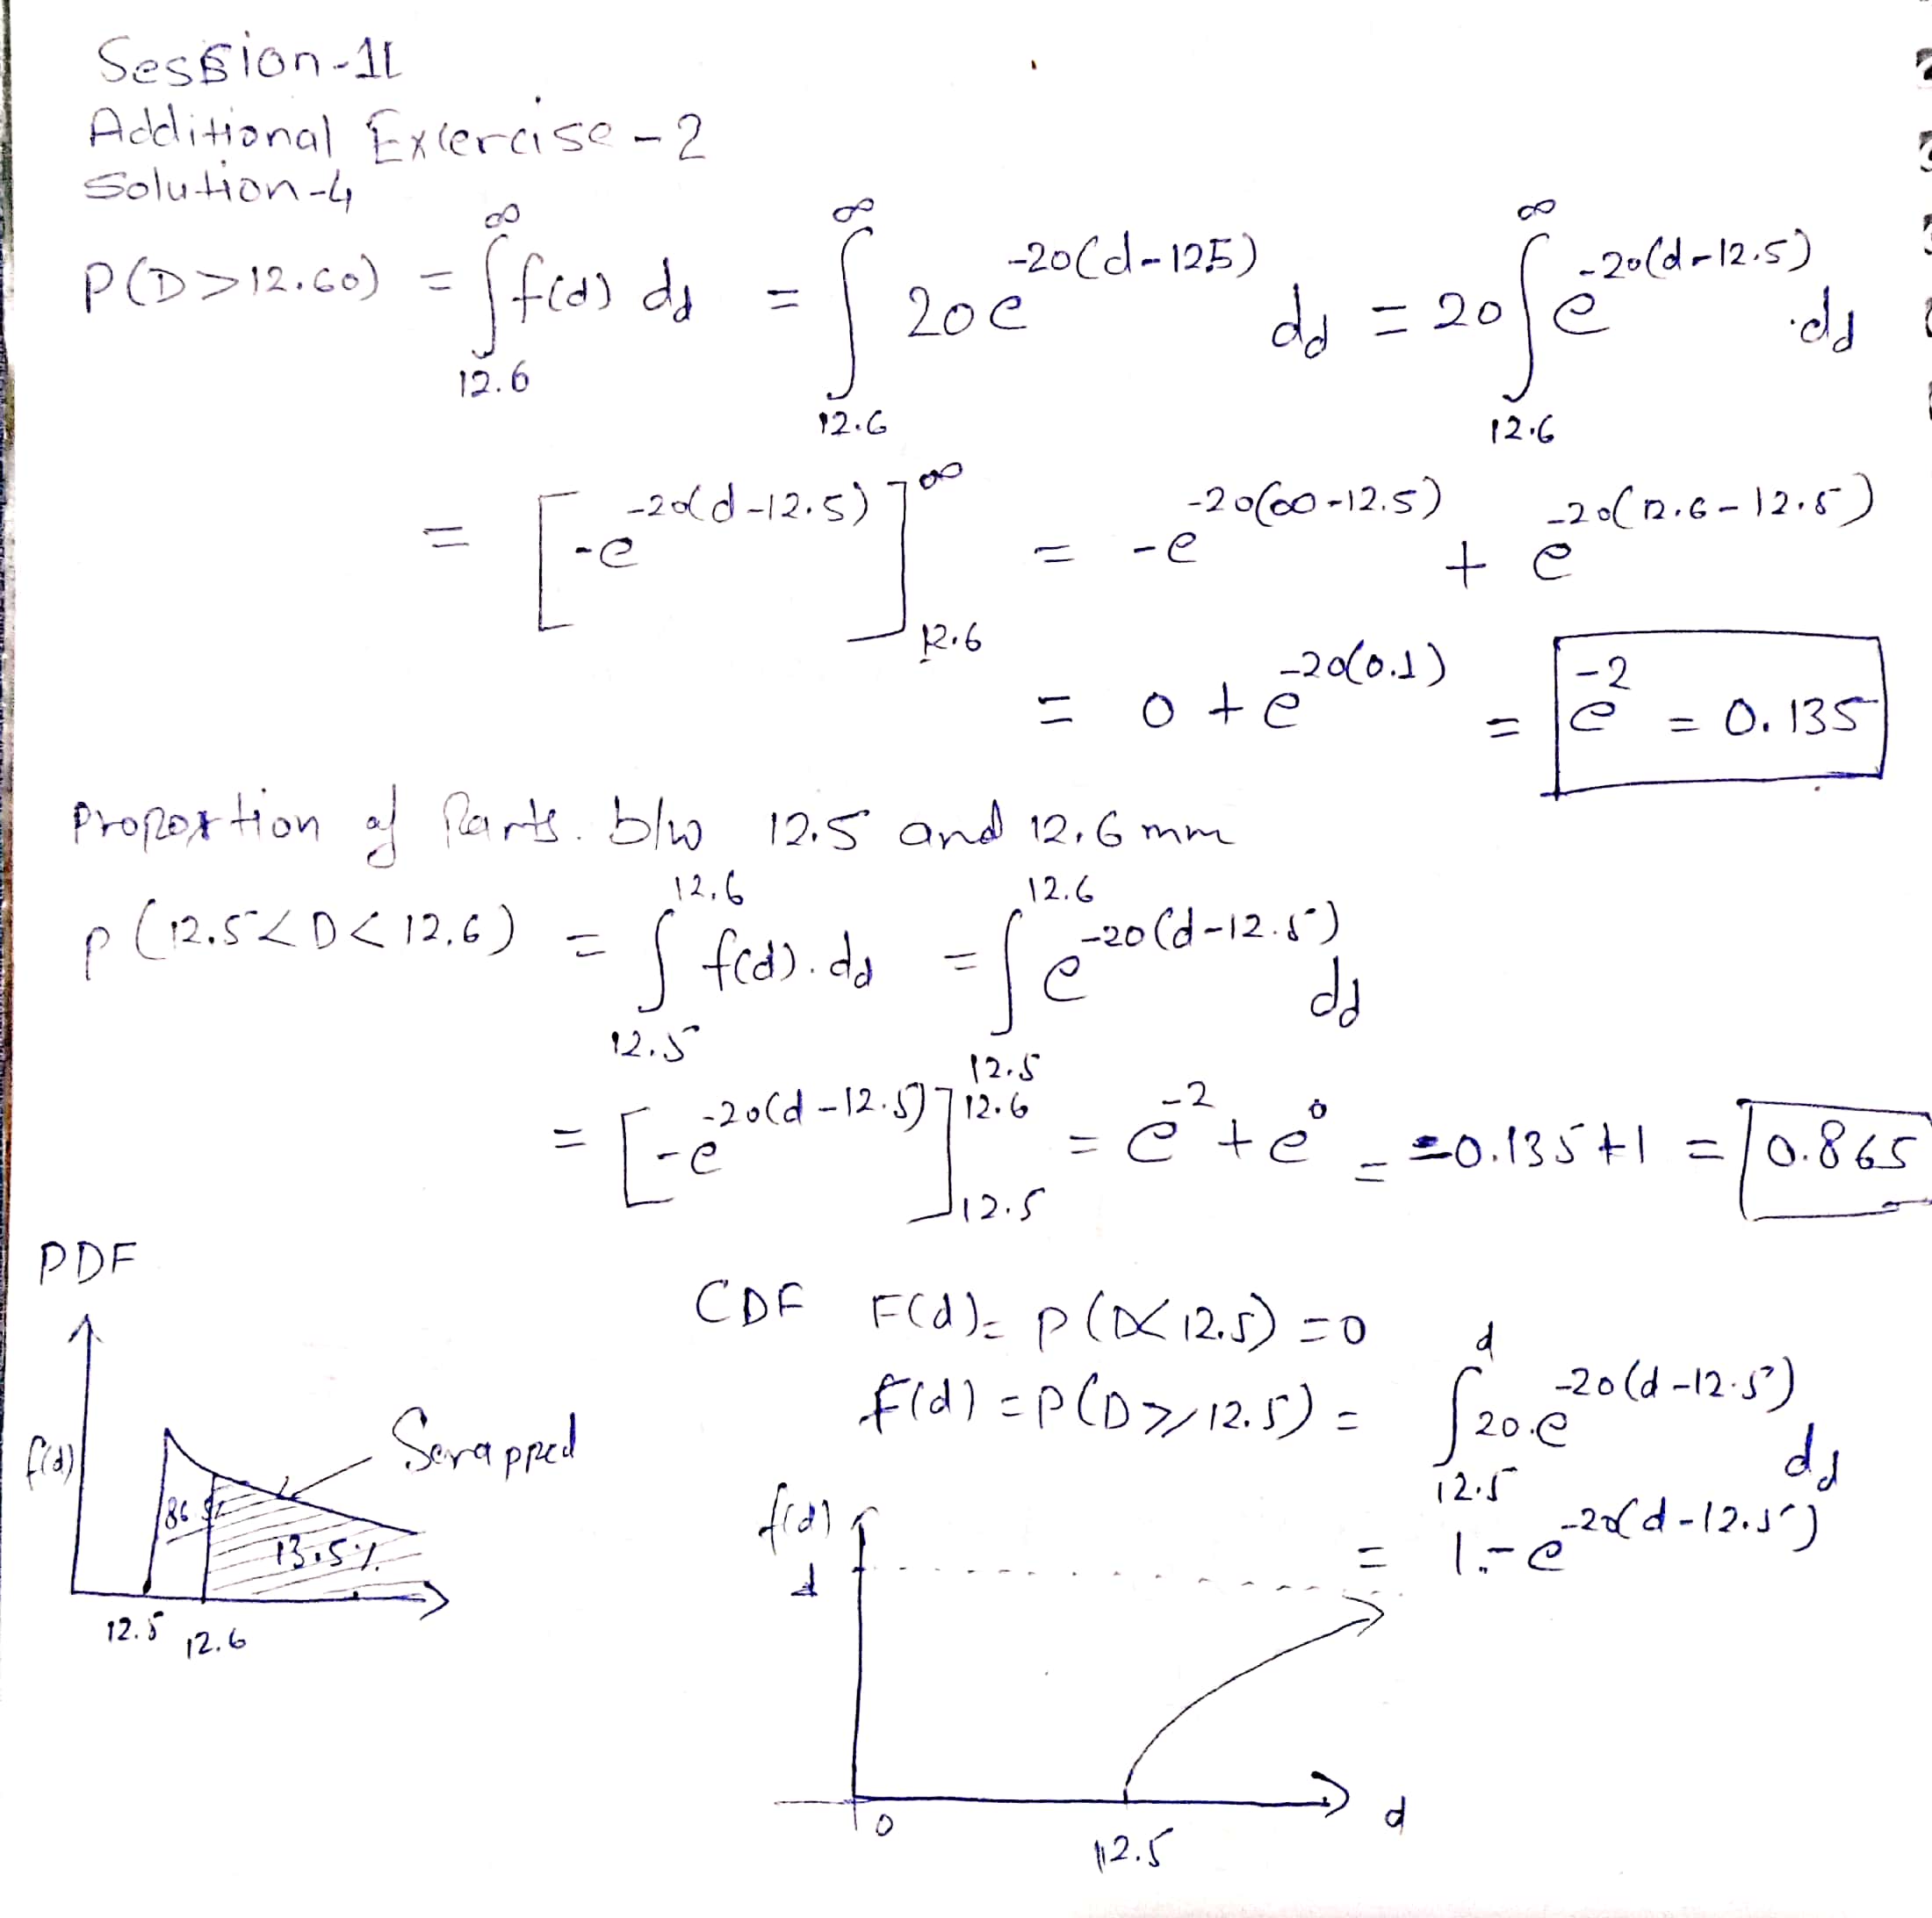 Session-11
Additional Excercise - 2
Solution-4
P(D>12.60) = ∫_{12.6}^{∞} f(d) dd = ∫_{12.6}^{∞} 20e^{-20(d-12.5)} dd = 20∫_{12.6}^{∞} e^{-20(d-12.5)} .dd
= [-e^{-20(d-12.5)}]_{12.6}^{∞} = -e^{-20(∞-12.5)} + e^{-20(12.6-12.5)}
= 0 + e^{-20(0.1)} = e^{-2} = 0.135
Proportion of Parts. b/w 12.5 and 12.6 mm
P(12.5<D<12.6) = ∫_{12.5}^{12.6} f(d).dd = ∫_{12.5}^{12.6} e^{-20(d-12.5)} dd
= [-e^{-20(d-12.5)}]_{12.5}^{12.6} = e^{-2} + e^{0} = -0.135+1 = 0.865
PDF
CDF F(d) = P(D<12.5) = 0
F(d) = P(D≥12.5) = ∫_{12.5}^{d} 20.e^{-20(d-12.5)} dd
= 1 - e^{-20(d-12.5)}
f(d)
Scrapped
13.5%
12.5 12.6
f(d)
1
0
12.5
d